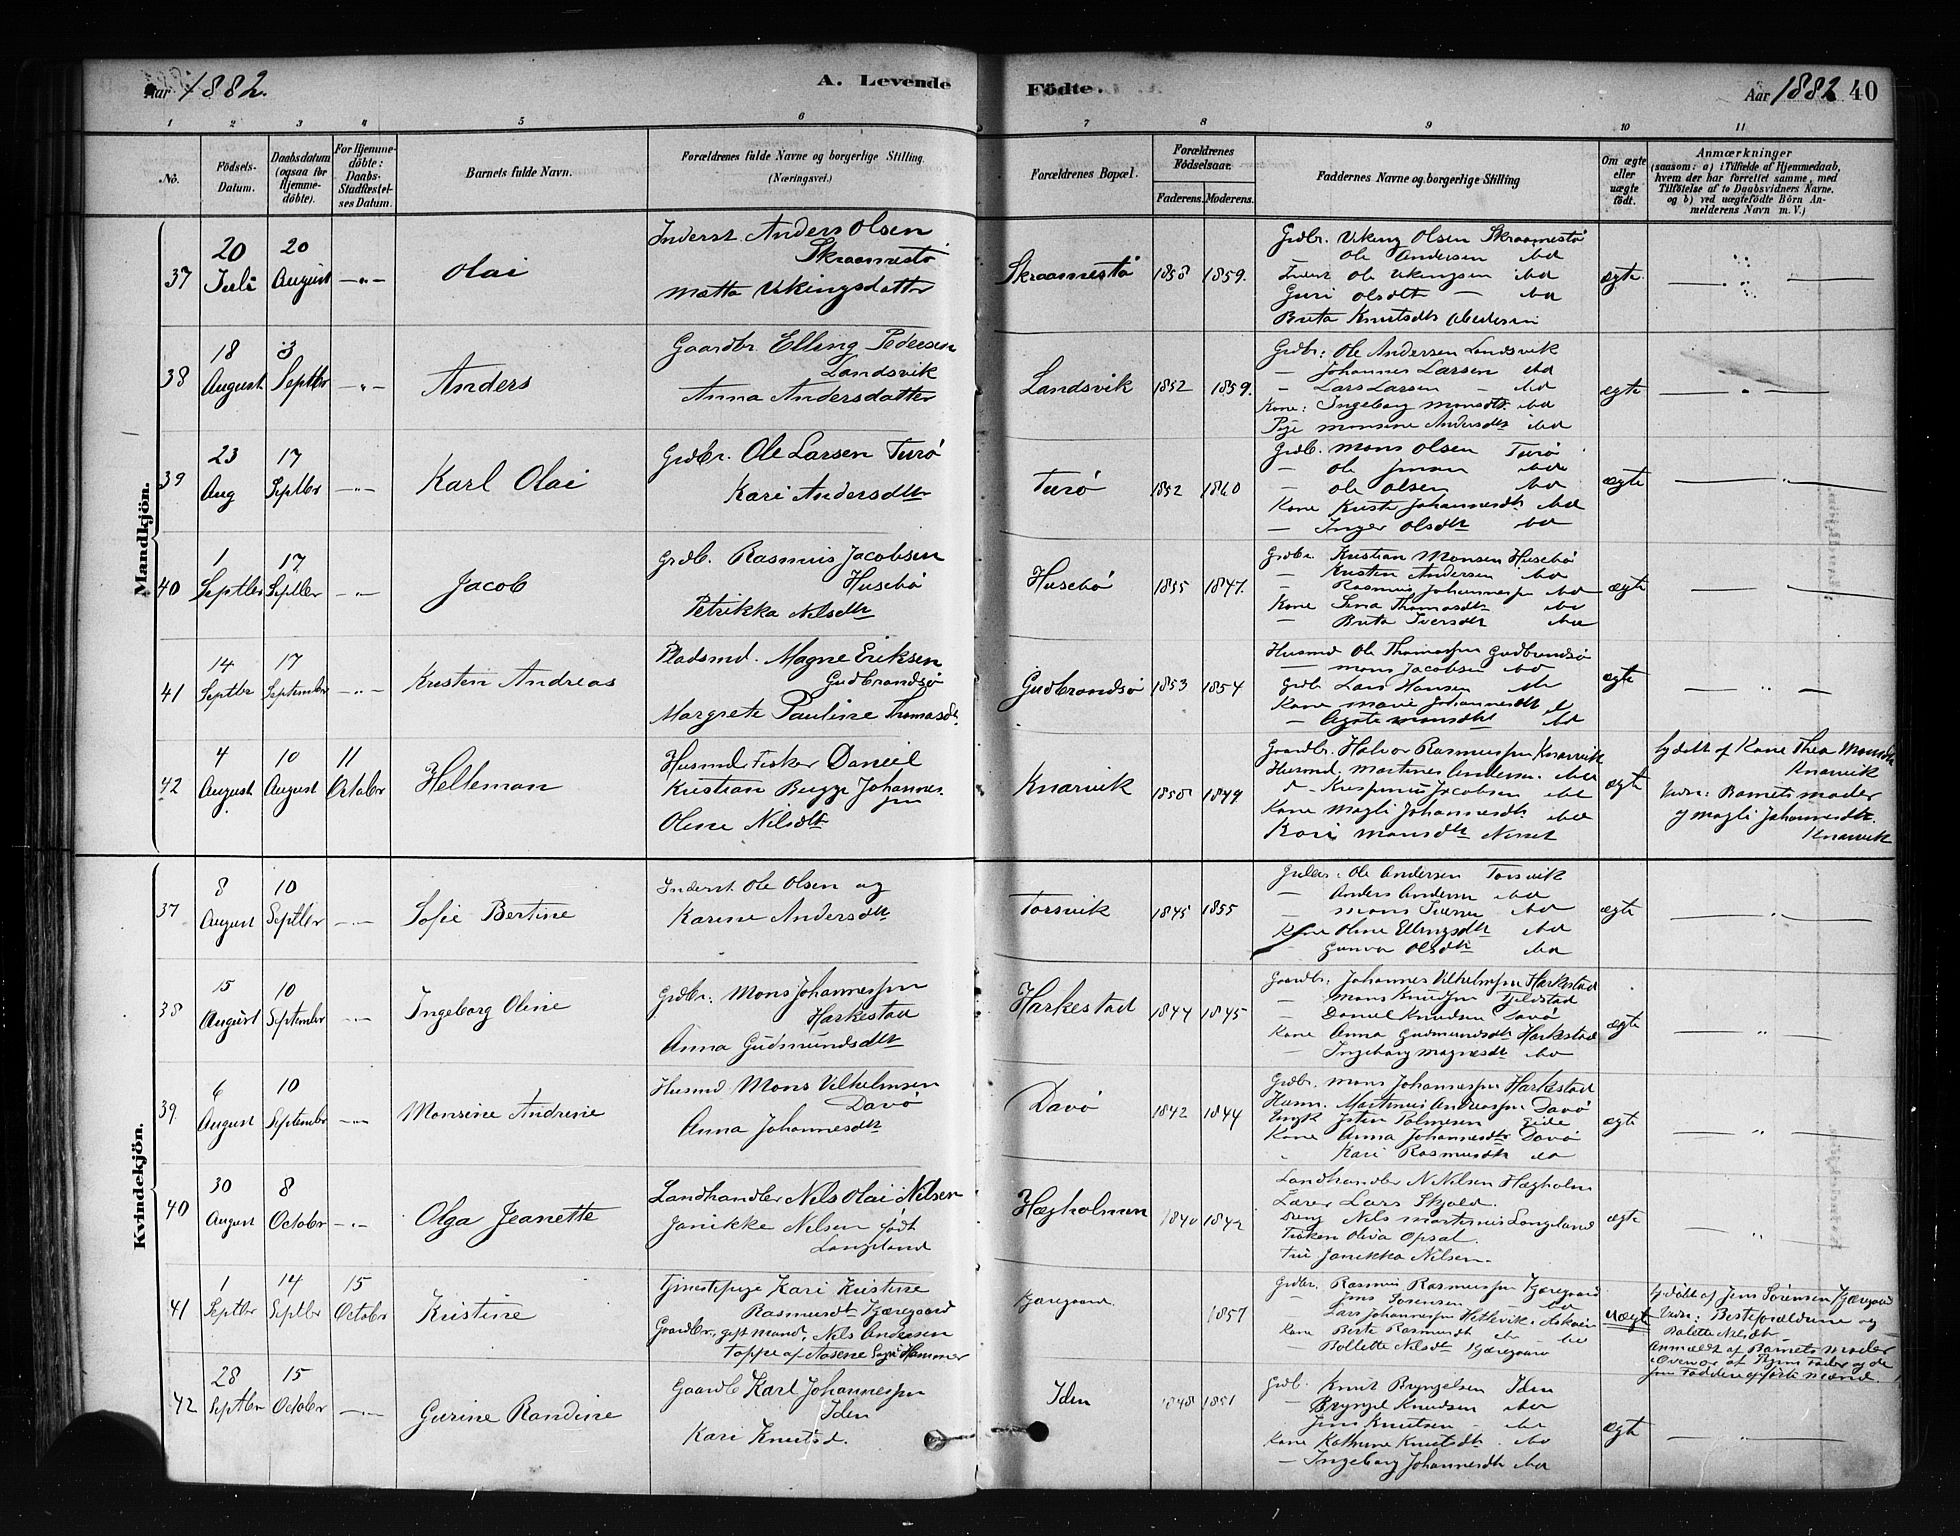 Aar 1882.
A. Levende
Födte.
Aar 1882 40
1 2 3 4 5 6 7 8 9 10 11
No.
Födsels-
Datum.
Daabsdatum
(ogsaa for
Hjemme-
döbte).
For Hjemme-
döbte:
Daabs-
Stadfæstel-
ses Datum.
Barnets fulde Navn.
Forældrenes fulde Navne og borgerlige Stilling.
(Næringsvei.)
Forældrenes Bopæl.
Forældrenes
Födselsaar.
Faderens. Moderens.
Faddernes Navne og borgerlige Stilling
Om ægte
eller
uægte
födt.
Anmærkninger
(saasom: a) i Tilfælde af Hjemmedaab,
hvem der har forrettet samme, med
Tilföielse af to Daabsvidners Navne.
og b) ved uægtefödte Börn An-
melderens Navn m. V.)
Mandkjön.
37
20
Juli
20
August
Olai
Inderst Anders Olsen
Skraamestø
Mætta Vikingsdatter
Skraamestø
1858 1859.
Grdbr. Viking Olsen Skraamestø
Ole Andersen ibd
Inderst Ole Vikingsen ibd
Guri Olsdtr — ibd
Brita Knutsdtr
ægte
38
18
August
3
Septbr
Anders
Gaardbr. Elling Pedersen
Landsvik
Anna Andersdatter
Landsvik
1852 1859.
Grdbr: Ole Andersen Landsvik
— Johannes Larsen ibd
— Lars Larsen — ibd
Kone: Ingeborg Monsdtr. ibd
Pige Monsine Andersdtr ibd
ægte
39
23
Aug
17
Septbr
Karl Olai
Grdbr. Ole Larsen Turø
Kari Andersdtr
Turø
1852 1860
Grdb. Mons Olsen Turø
— Ole ibd
— Ole Olsen ibd
Kone Johannesdtr ibd
— Inger Olsdtr ibd
ægte
40
1
Septbr
17
Septbr
Jacob
Grdb. Rasmus Jacobsen
Husebø
Petrikka Nilsdtr
Husebø
1855 1847.
Grdbr. Kristian Monsen Husebø
— Kristen Andersen ibd
— Rasmus Johannessen ibd
Kone Sina Thomasdtr ibd
— Brita Iversdtr ibd
ægte
41
14
Septbr
17
September
Kristen Andreas
Pladsmd. Magne Eriksen
Gudbrandsø
Margrete Pauline Thomasdt.
Gudbrandsø
1853 1854
Husmd Ole Thomassen Gudbrandsø
— Mons Jacobsen ibd
Grdb Lars Hansen ibd
Kone Marie Johannesdtr
— Agate Monsdtr ibd
ægte
42
4
August
10
August
11
October
Helleman
Husmd Fisker Daniel
Kristian Bugge Johannes-
sen
Oline Nilsdtr
Knarvik
1850 1849
Gaardbr. Halvor Rasmussen Knarvik
Husmd. Martines Andersen. ibd
d — Krispinus Jacobsen ibd
Kone Magli Johannesdtr ibd
Kari Monsdtr
ægte
hjdøbt af Kone Thea Monsdtr
Knarvik
Vidn: Barnets moder
og Magli Johannesdtr.
Knarvik
Kvindekjön.
37
8
August
10
Septbr
Sofie Bertine
Inderst Ole Olsen og
Karine Andersdtr
Torsvik
1845 1855
Ole Andersen Torsvik
— Anders Andersen ibd
— Mons Iversen ibd
Kone Oline Ellingsdtr ibd
Gunva Olsdtr ibd
ægte
38
15
August
10
September
Ingeborg Oline
Grdbr: Mons Johannessen
Harkestad
Anna Gudmundsdtr
Harkestad
1844 1845
Gaardbr. Johannes Vilhelmsen Harkestad
— Mons Knudsen Fjeldstad
— Daniel Knudsen Davø
Kone Anna Gudmundsdtr Harkestad
— Ingeborg Magnesdtr ibd
ægte
39
6
August
10
September
Monsine Andrine
Husmd Mons Vilhelmsen
Davø
Anna Johannesdtr
Davø
1842 1844
Grdbr. Mons Johannessen Harkestad
Husm. Martinus Andreassen Davø
Kone Anna Johannesdtr Davø
Kari Rasmusdtr ibd
ægte
40
30
August
8
October
Olga Jeanette
Landhandler Nils Olai Nilsen
Janikke Nilsen født
Langeland
Hægholmen
1840 1842
Landhandler N Nilsen Hægholm
Lærer Lars Skjold.
Dreng Nils Martinus Langeland
Frøken Oliva Opsal.
Fru Janikka Nilsen.
ægte
41
1
Septbr
14
Septbr
15
October
Kristine
Tjenestepige Kari Kristine
Rasmusdt Kjæregaard
Gaardbr, gift mand, Nils Andersen
Toppe af Aasene Sogn Hammer
Kjæregaard.
1857
Grdbr. Rasmus Rasmussen Kjæregaard
— Jens Sørensen — ibd
Lars Johannessen Hetlevik i Askøen
Kone Berte Rasmusdt ibd
— Bollette Nilsdt Kjæregaard
uægte
hjdøbt af Jens Sørensen Kjæregaard
Vidn: Besteforældrene og
Bolette Nilsdt
Anmeldt af Barnets moder
42
28
Septbr
15
October
Gurine Randine
Gaardb Karl Johannessen
Iden
Kari Knutsd.
Iden
1848 1851
Grdb. Knut Brynjelsen Iden
— Brynjel Knudsen ibd
Jens Knutsen — ibd
Kone Kathrine Knutsdtr. ibd
— Ingeborg Johannesdtr ibd
ægte